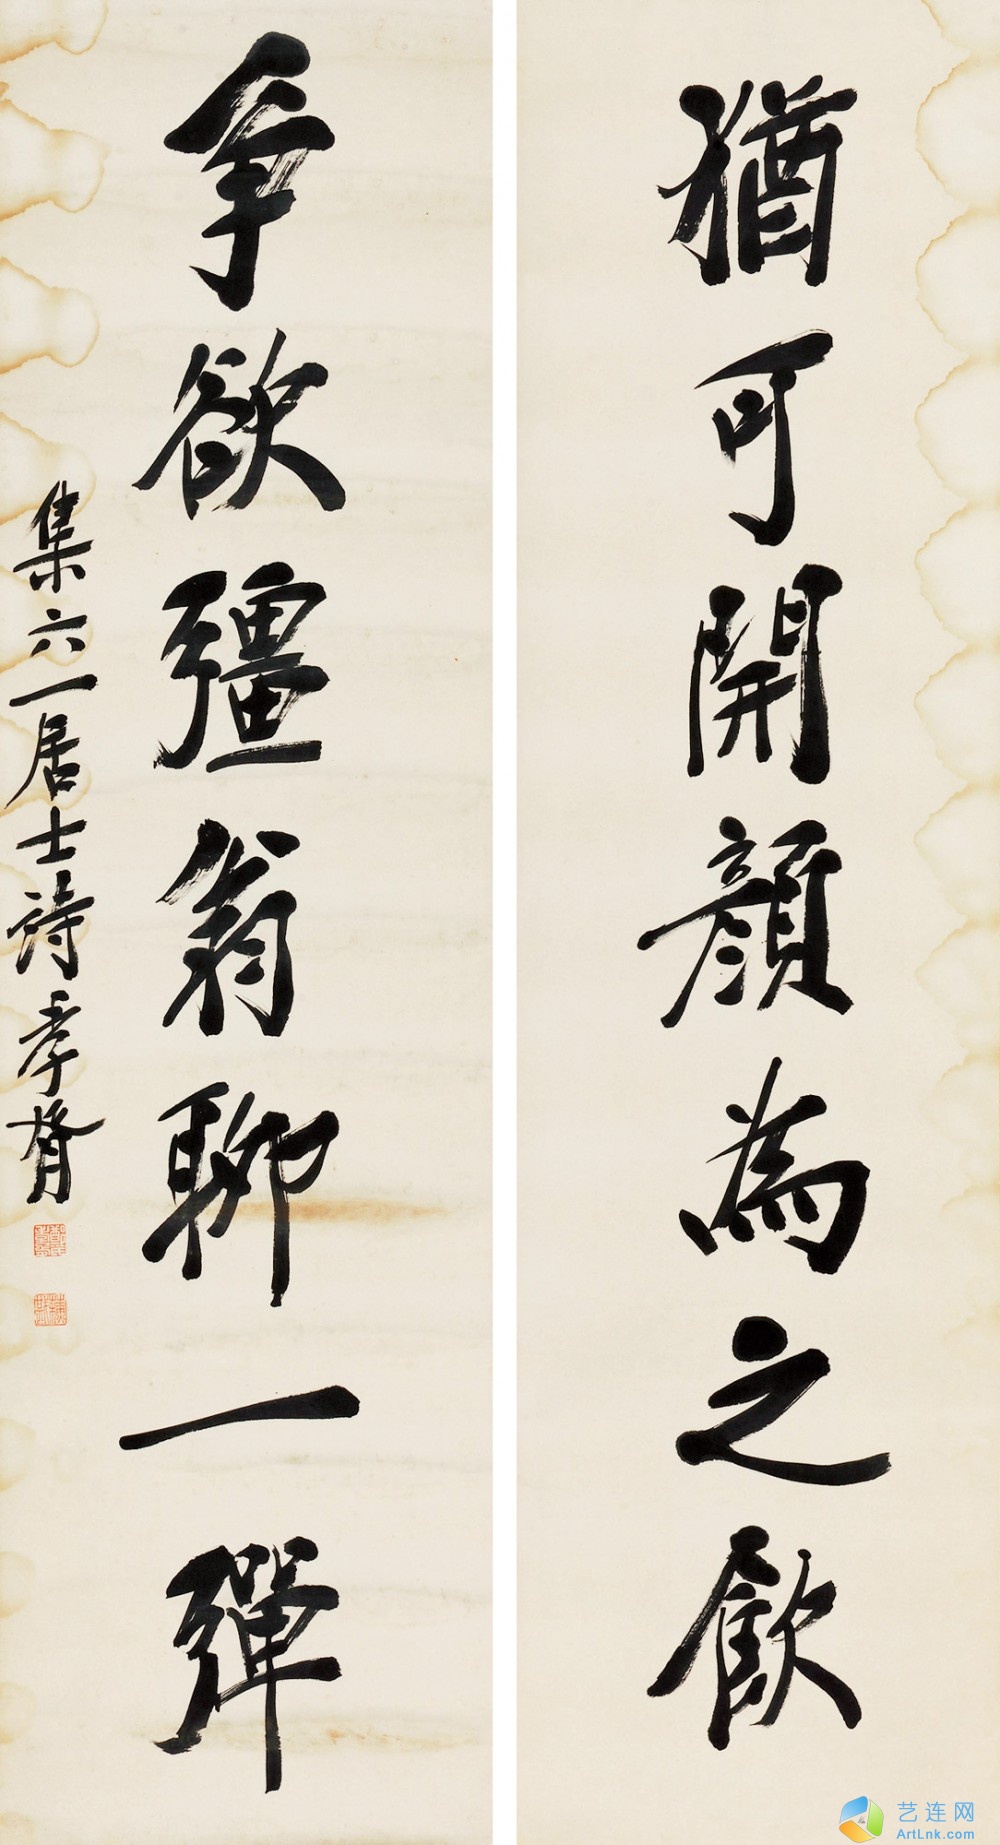 猶可開顏為之飲
爭欲彊翁聊一彈
集六一居士詩孝胥
艺连网
ArtLnk.com